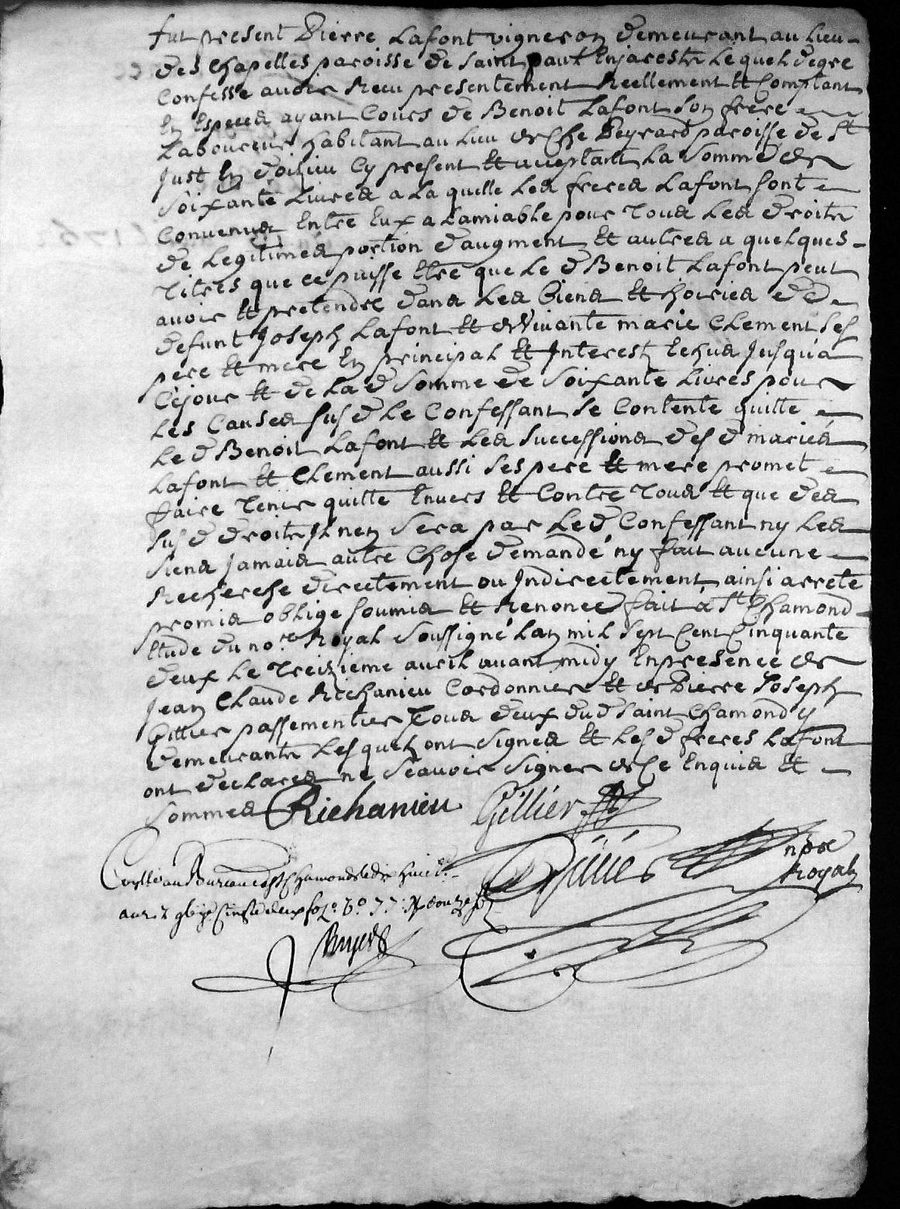 fut present Pierre Lafont vigneron demeurant au Lieu
des Chapelles paroisse de Saint paul Enjarest Lequel de gre
Confesse avoir Recu presentement Reellement et Comptant
En Especes ayant Cours de Benoit Lafont son frere
Laboureur habitant au Lieu de Che Peyrard paroisse de St
Just En doizieu Cy present et acceptant La Somme de
Soixante Livres a Laquelle Les freres Lafont sont
Convenus Entre Eux a Lamiable pour Tous Les droits
de Legitimes portion d'augment et autres a quelques
Titres que ce puisse Etre que Le d Benoit Lafont peut
avoir et pretendre dans Les biens et hoiries de
defunt Joseph Lafont et de Vivante marie Clement ses
pere et mere En principal et Interest Echus Jusqu'a
Cejour et de La d Somme de Soixante Livres pour
Les Causes susd Le Confessant se Contente quitte
Le d Benoit Lafont et Les Successions des d maries
Lafont et Clement aussi ses pere et mere promet
faire Tenir quitte Envers et Contre Tous et que des
susd droits Il nen Sera par Le d Confessant ny Les
Siens Jamais autre Chose demandé ny fait aucune
Recherche directement ou Indirectement ainsi arreté
promis obligé soumis et Renoncé fait à St Chamond
Etude du nore Royal Soussigné Lan mil Sept Cent Cinquante
deux Le Treizieme avril avant midy En presence de
Jean Claude Richanieu Cordonnier et de Pierre Joseph
Gillier passementier Tous deux du d Saint Chamond y
demeurants Lesquels ont Signés et Les d freres Lafont
ont declarés ne Scavoir Signer de ce Enquis et
Sommes Richanieu Gillier
nore
Royal
Controllé au Bureau de St Chamond le